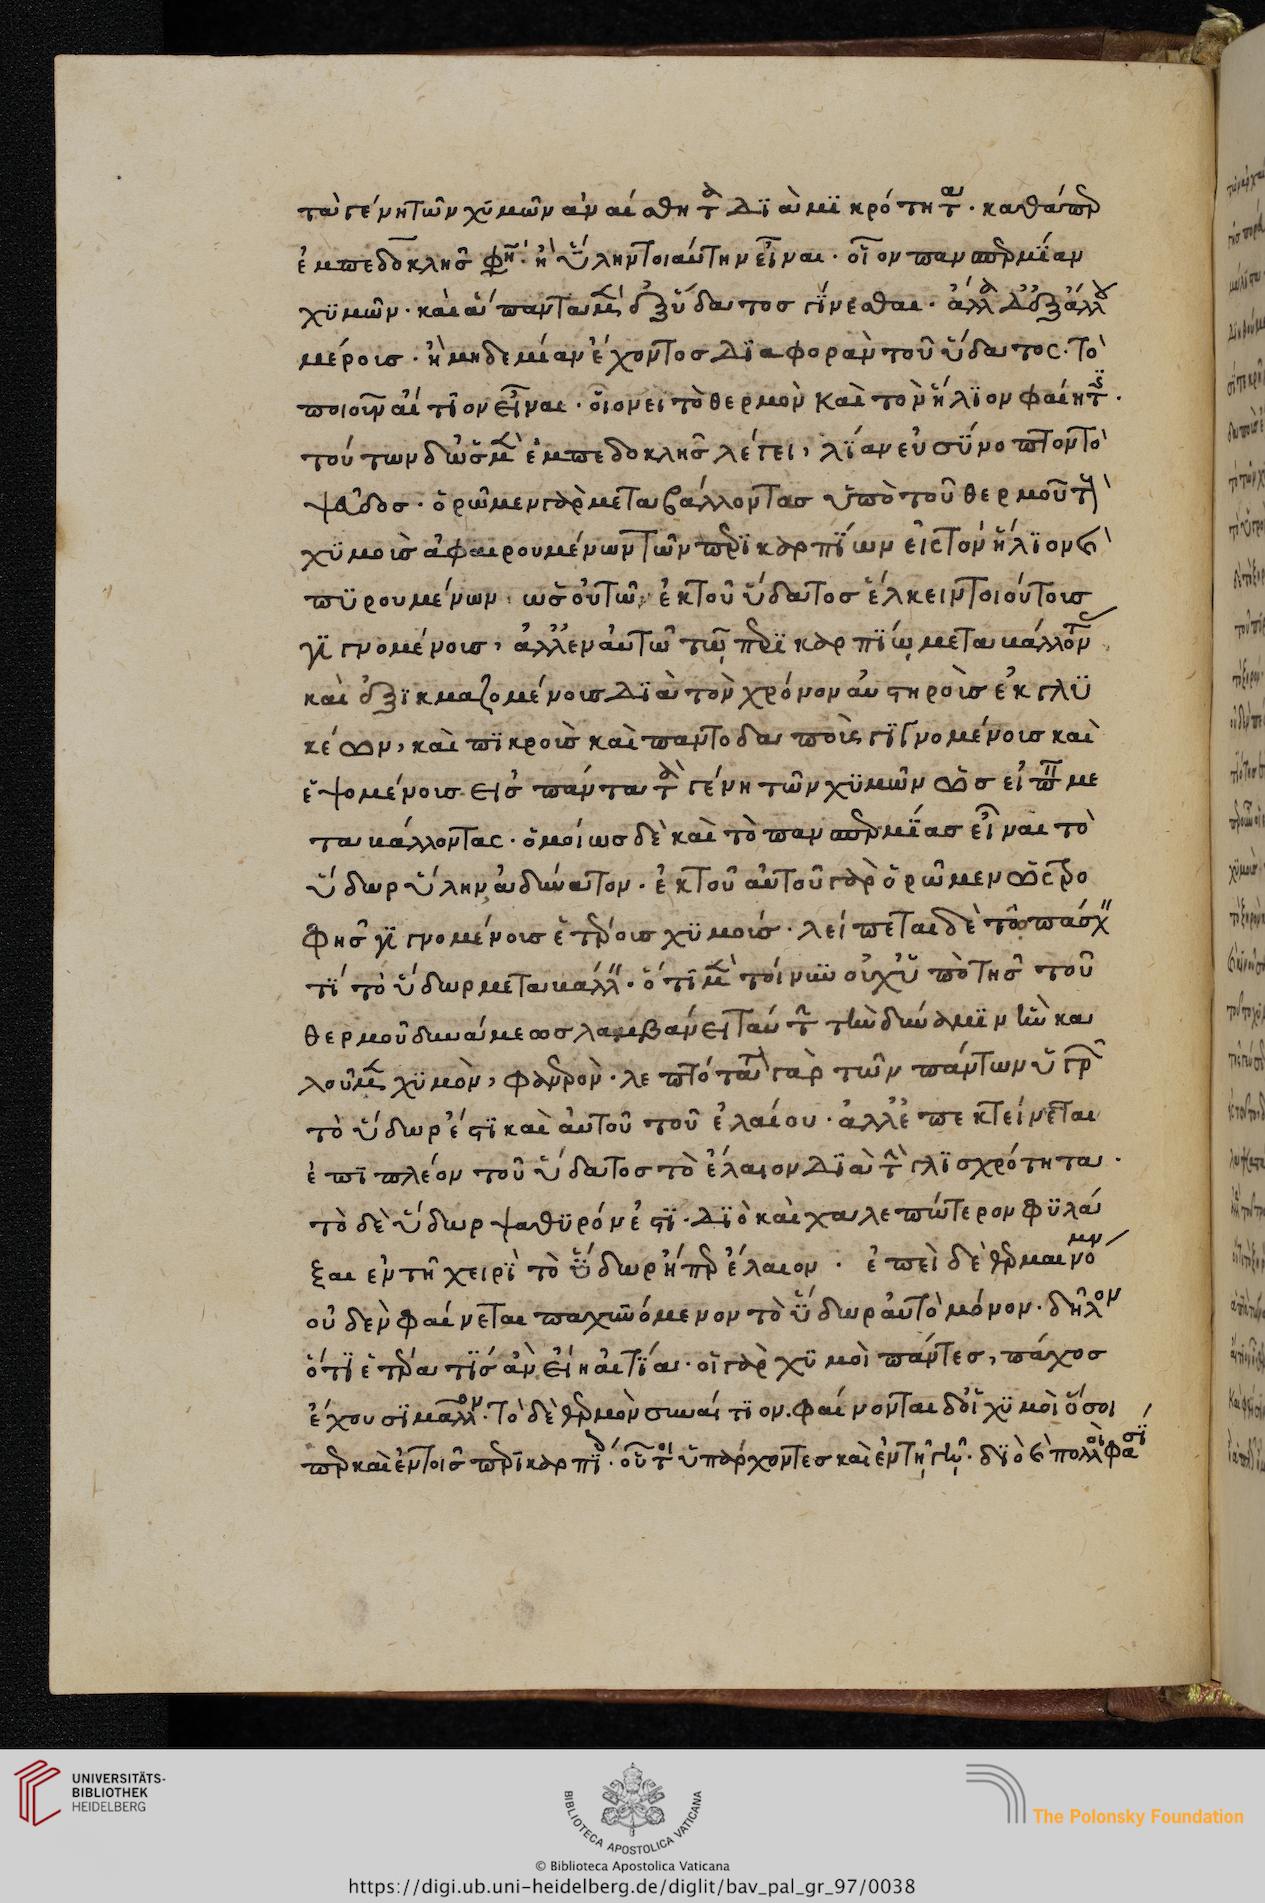 τὰ γένη τῶν χυμῶν ἀναίσθητα διὰ μικρότητα. καθάπερ
ἐμπεδοκλῆς φησὶ. ἢ ὕλην τοιαύτην εἶναι. οἷον πανσπερμίαν
χυμῶν. καὶ ἅπαντα μὲν ἐξ ὕδατος γίνεσθαι. ἄλλα δ' ἐξ ἄλλου
μέροις. ἢ μηδεμίαν ἔχοντος διαφορὰν τοῦ ὕδατος. τὸ
ποιοῦν αἴτιον εἶναι. οἷονεὶ τὸ θερμὸν καὶ τὸν ἥλιον φαίη τις.
τούτων δ' ὡς μὲν ἐμπεδοκλῆς λέγει, λίαν εὐσύνοπτον τὸ
ψεῦδος. ὁρῶμεν γὰρ μεταβάλλοντας ὑπὸ τοῦ θερμοῦ τοὺς
χυμοὺς ἀφαιρουμένων τῶν περικαρπίων εἰς τὸν ἥλιον καὶ
πυρουμένων. ὡς οὐ τῶ ἐκ τοῦ ὕδατος ἕλκειν τοιούτοις
γιγνομένοις, ἀλλ' ἐν αὐτῶ τῶ περικαρπίω μεταβάλλοντας
καὶ ἐξικμαζομένοις διὰ τὸν χρόνον αὐστηροὶς ἐκ γλυ
κέων, καὶ πικροὶς καὶ παντοδαποὶς γιγνομένοις καὶ
ἑψομένοις εἰς πάντα τὰ γένη τῶν χυμῶν ὡς εἰπεῖν με
ταβάλλοντας. ὁμοίως δὲ καὶ τὸ πανσπερμίας εἶναι τὸ
ὕδωρ ὕλην ἀδύνατον. ἐκ τοῦ αὐτοῦ γὰρ ὁρῶμεν ὡς τρο
φῆς γιγνομένοις ἑτέροις χυμοὶς. λείπεται δὲ τῶ πάσχειν
τὶ τὸ ὕδωρ μεταβάλλειν. ὅτι μὲν τοίνυν οὐχ ὑπὸ τῆς τοῦ
θερμοῦ δυνάμεως λαμβάνει ταύτην τὴν δύναμιν ἣν κα
λοῦμεν χυμὸν, φανερὸν. λεπτότατον γὰρ τῶν πάντων ὑγρῶν
τὸ ὕδωρ ἐστὶ καὶ αὐτοῦ τοῦ ἐλαίου. ἀλλ' ἐπεκτείνεται
ἐπὶ πλέον τοῦ ὕδατος τὸ ἔλαιον διὰ τὴν γλισχρότητα.
τὸ δὲ ὕδωρ ψαθυρόν ἐστι. διὸ καὶ χαλεπώτερον φυλά
ξαι ἐν τῆ χειρὶ τὸ ὕδωρ ἤπερ ἔλαιον. ἐπεὶ δὲ θερμαινόμενον
οὐδὲν φαίνεται παχυνόμενον τὸ ὕδωρ αὐτὸ μόνον. δῆλον
ὅτι ἑτέρα τὶς ἂν εἴη αἰτία. οἱ γὰρ χυμοὶ πάντες, πάχος
ἔχουσι μᾶλλον. τὸ δὲ θερμὸν συναίτιον. φαίνονται δ' οἱ χυμοὶ ὅσοι
περ καὶ ἐν τοῖς περικαρπίοις. οὗτοι ὑπάρχοντες καὶ ἐν τῆ γῆ. διὸ καὶ πολλοί φασι
UNIVERSITÄTS-
BIBLIOTHEK
HEIDELBERG
BIBLIOTECA APOSTOLICA VATICANA
The Polonsky Foundation
© Biblioteca Apostolica Vaticana
https://digi.ub.uni-heidelberg.de/diglit/bav_pal_gr_97/0038